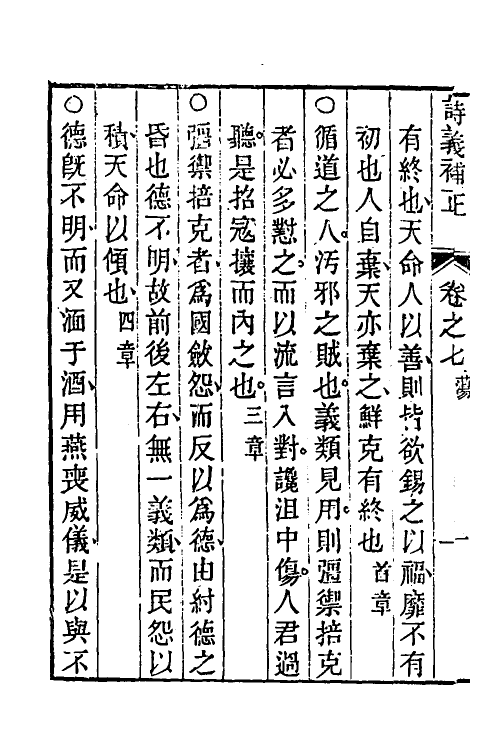 詩義補正 卷之七 蕩 一
有終也天命人以善則皆欲錫之以福靡不有
初也人自棄天亦棄之鮮克有終也 首章
○循道之人汚邪之賊也義類見用則彊禦掊克
者必多懟之而以流言入對讒沮中傷人君過
聽是招寇攘而內之也 三章
○彊禦掊克者爲國斂怨而反以爲德由紂德之
昏也德不明故前後左右無一義類而民怨以
積天命以傾也 四章
○德旣不明而又湎于酒用燕喪威儀是以與不